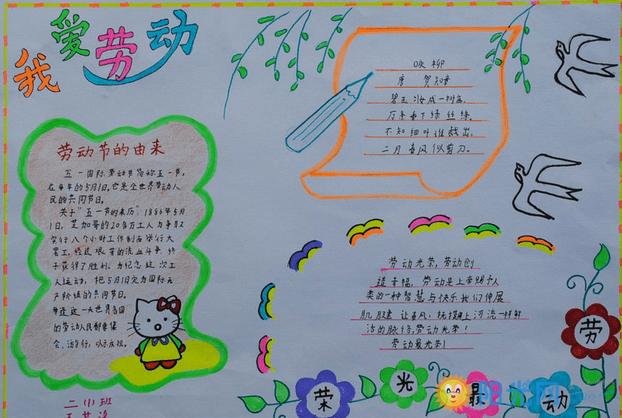 我爱劳动
劳动节的由来
五一国际劳动节简称五一节,
在每年的5月1日,它是全世界劳动人
民的共同节日。
关于"五一节的来历"1886年5月
1日,芝加哥的20多万工人为争取
实行八个小时工作制而举行大
罢工,经过艰苦的流血斗争,终
于获得了胜利。为纪念这次工
人运动,把5月1日定为国际无
产阶级的共同节日。
这一天世界各国
的劳动人民都要集
会、游行,以示庆祝。
二(1)班
咏柳
唐 贺知章
碧玉妆成一树高,
万条垂下绿丝绦,
不知细叶谁裁出,
二月春风似剪刀。
劳动光荣,劳动创
造幸福,劳动是上帝赐予人
类的一种智慧与快乐,我们伸展
肌肤,让春风
活的脉络,劳动光荣!
劳动最光荣!
劳
动
最
光
荣